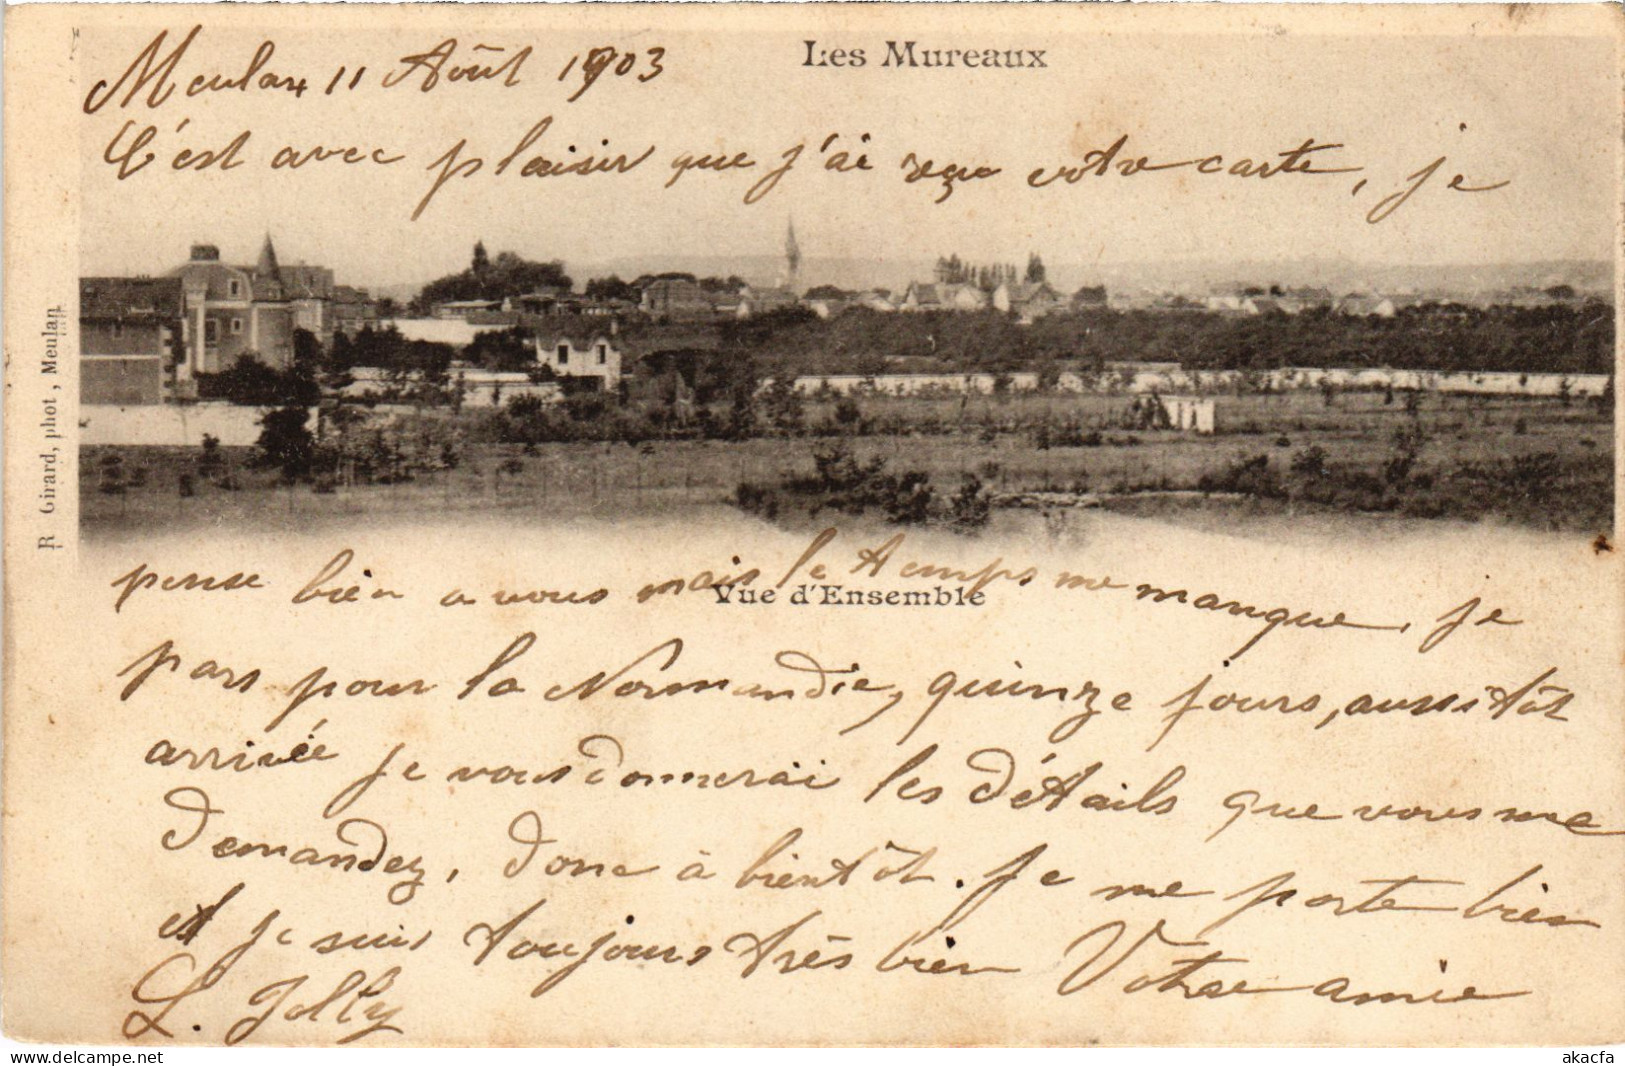 Les Mureaux
Meulan 11 Août 1903
C'est avec plaisir que j'ai reçu votre carte, je
pense bien a vous mais le temps me manque, je
Vue d'Ensemble
pars pour la Normandie, quinze jours, aussitôt
arrivée je vous donnerai les détails que vous me
demandez, donc à bientôt. Je me porte bien
et je suis toujours très bien Votre amie
L. Jolly
R Girard, phot, Meulan
www.delcampe.net
akacfa